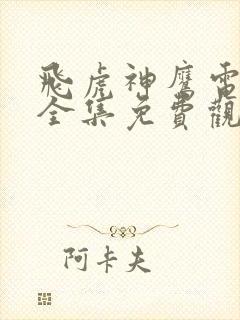 飛虎神鷹電
全集免費觀
阿卡夫